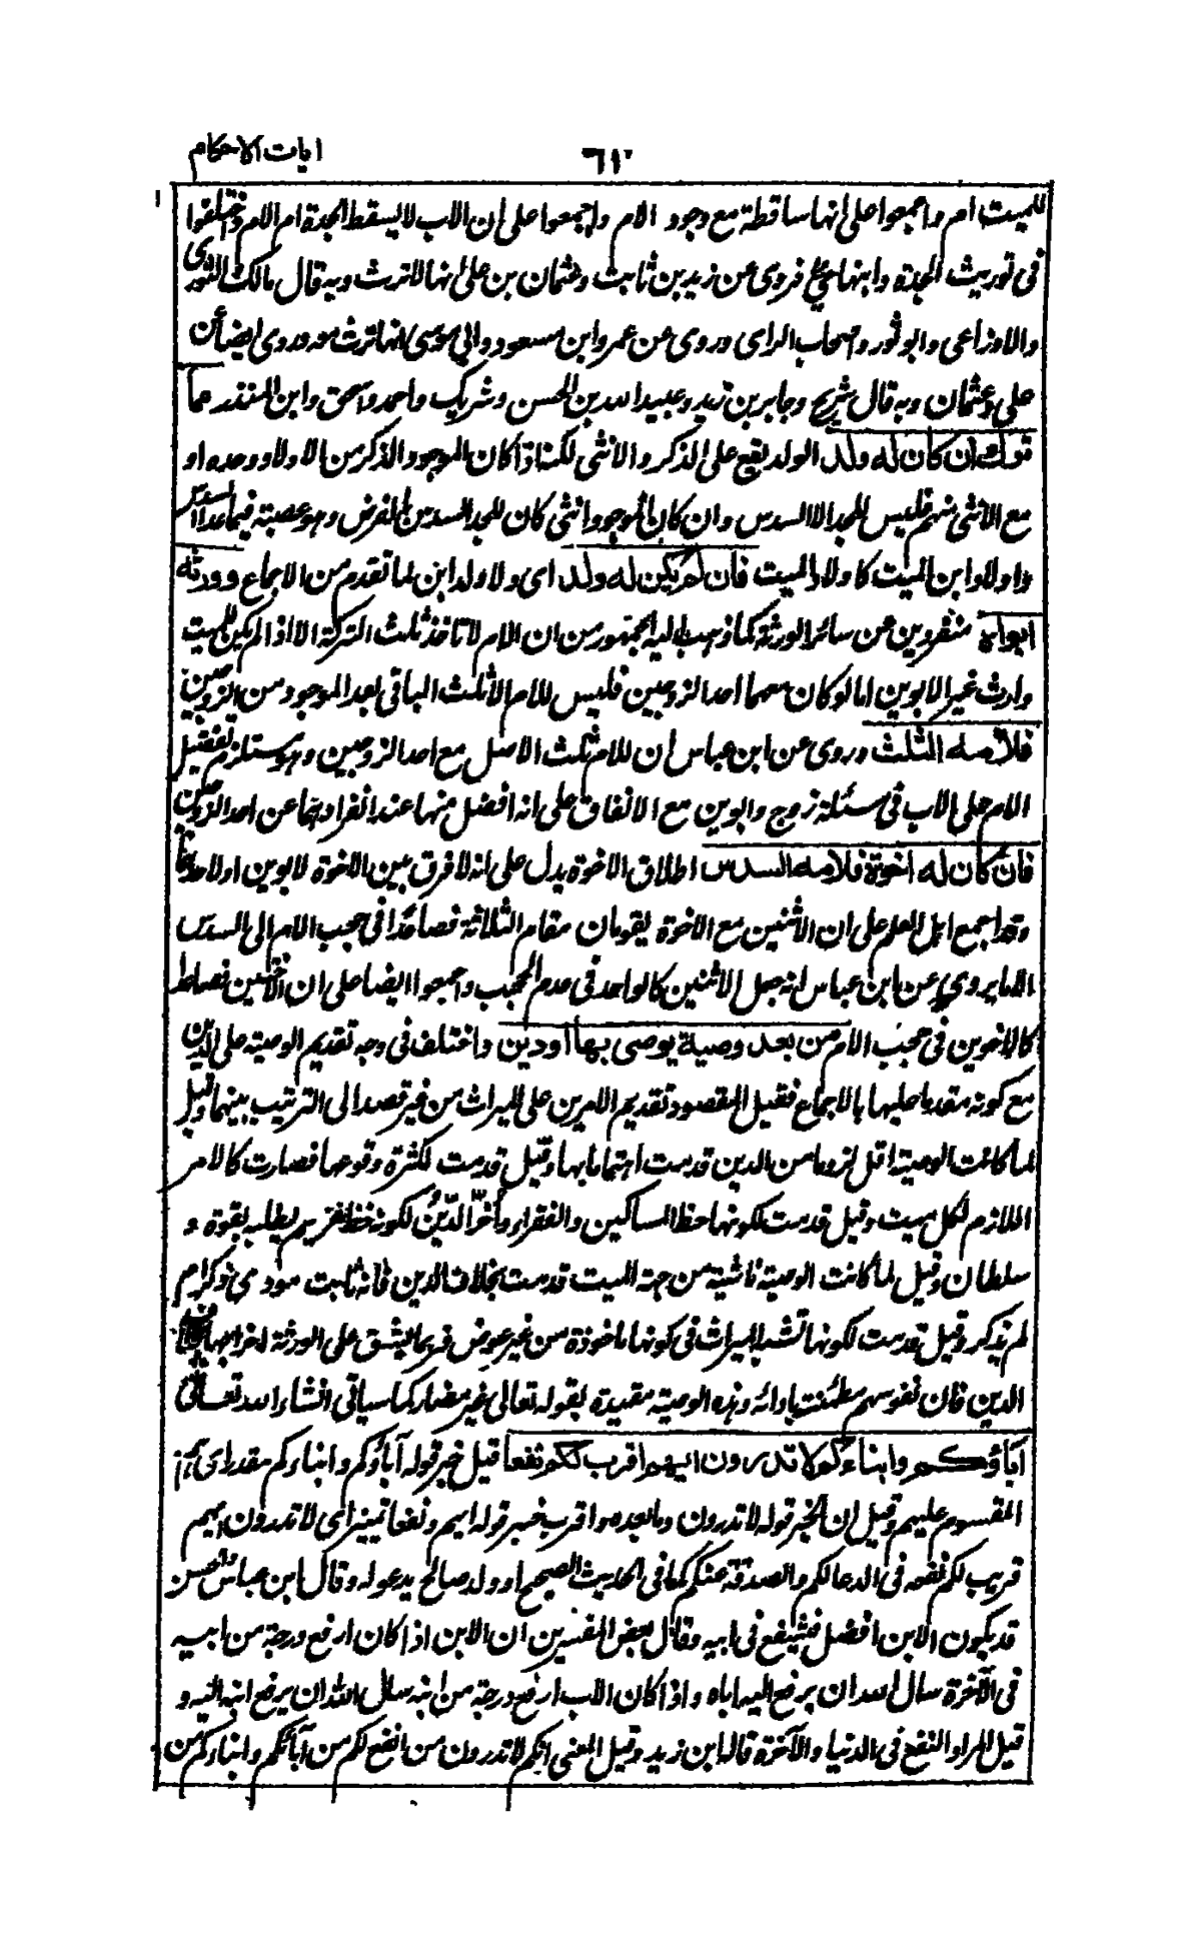 ايات الاحكام
٦١
للميت ام واجمعوا على انها ساقطة مع وجود الام واجمعوا على ان الاب لا يسقط الجدة ام الام واختلفوا
فى توريث الجدة وابنها حي فروى عن زيد بن ثابت وعثمان بن على انها لا ترث وبه قال مالك الثورى
والاوزاعى وابو ثور واصحاب الراى وروى عن عمر وابن مسعود وابي موسى انها ترث معه وروى ايضا عن
على وعثمان وبه قال شريح وجابر بن زيد وعبيد الله بن الحسن وشريك واحمد واسحق وابن المنذر
قوله ان كان له ولد الولد يقع على الذكر والانثى لكنه اذا كان الموجود الذكر من الاولاد وحده او
مع الانثى منهم فليس للجد الا السدس وان كان الموجود انثى كان للجد السدس بالفرض وهو عصبة فيما عدا السدس
واولاد ابن الميت كاولاد الميت فان لم يكن له ولد اى ولا ولد ابن لما تقدم من الاجماع وورثه
ابواه منفردين عن سائر الورثة كما ذهب اليه الجمهور من ان الام لا تاخذ ثلث التركة الا اذا لم يكن للميت
وارث غير الابوين اما لو كان معهما احد الزوجين فليس للام الا ثلث الباقى بعد الموجود من الزوجين
فلامه الثلث وروى عن ابن عباس ان للام ثلث الاصل مع احد الزوجين وهو يستلزم تفضيل
الام على الاب فى مسئلة زوج وابوين مع الاتفاق على انه افضل منها عند انفرادهما عن احد الزوجين
فان كان له اخوة فلامه السدس اطلاق الاخوة يدل على انه لا فرق بين الاخوة لابوين او لاحدهما
وقد اجمع اهل العلم على ان الاثنين مع الاخوة يقومان مقام الثلاثة فصاعدا فى حجب الام الى السدس
الا ما يروي عن ابن عباس انه جعل الاثنين كالواحد فى عدم الحجب واجمعوا ايضا على ان الاختين فصاعدا
كالاخوين فى حجب الام من بعد وصية يوصى بها او دين واختلف فى وجه تقديم الوصية على الدين
مع كونه مقدما عليها بالاجماع فقيل المقصود تقديم الامرين على الميراث من غير قصد الى الترتيب بينهما وقيل
لما كانت الوصية اقل لزوما من الدين قدمت اهتماما بها وقيل قدمت لكثرة وقوعها فصارت كالامر
اللازم لكل ميت وقيل قدمت لكونها حظ المساكين والفقراء واُخّر الدَّيْنُ لكونه حظ غريم يطلبه بقوة و
سلطان وقيل لما كانت الوصية ناشية من جهة الميت قدمت بخلاف الدين فانه ثابت مودى ذكر ام
لم يذكر وقيل قدمت لكونها تشبه الميراث فى كونها ماخوذة من غير عوض فربما يشق على الورثة اخراجها بخلاف
الدين فان نفوسهم مطمئنة بادائه وهذه الوصية مقيدة بقوله تعالى غير مضار كما سياتى انشاء الله تعالى
آباؤكم وابناءكم لا تدرون ايهم اقرب لكم نفعا قيل خبر قوله آباؤكم وابناءكم مقدر اى هم
المقسوم عليهم وقيل ان الخبر قوله لا تدرون وما بعده واقرب خبر قوله ايهم ونفعا تمييز اى لا تدرون ايهم
قريب لكم نفعه فى الدعا لكم والصدقة عنكم كما فى الحديث الصحيح او ولد صالح يدعو له وقال ابن عباس والحسن
قد يكون الابن افضل فيشفع فى ابيه وقال بعض المفسرين ان الابن اذا كان ارفع درجة من ابيه
فى الآخرة سال الله ان يرفع اليه اباه واذا كان الاب ارفع درجة من ابنه سال الله ان يرفع ابنه اليه و
قيل المراد النفع فى الدنيا والآخرة قاله ابن زيد وقيل المعنى انكم لا تدرون من انفع لكم من آبائكم وابناءكم من